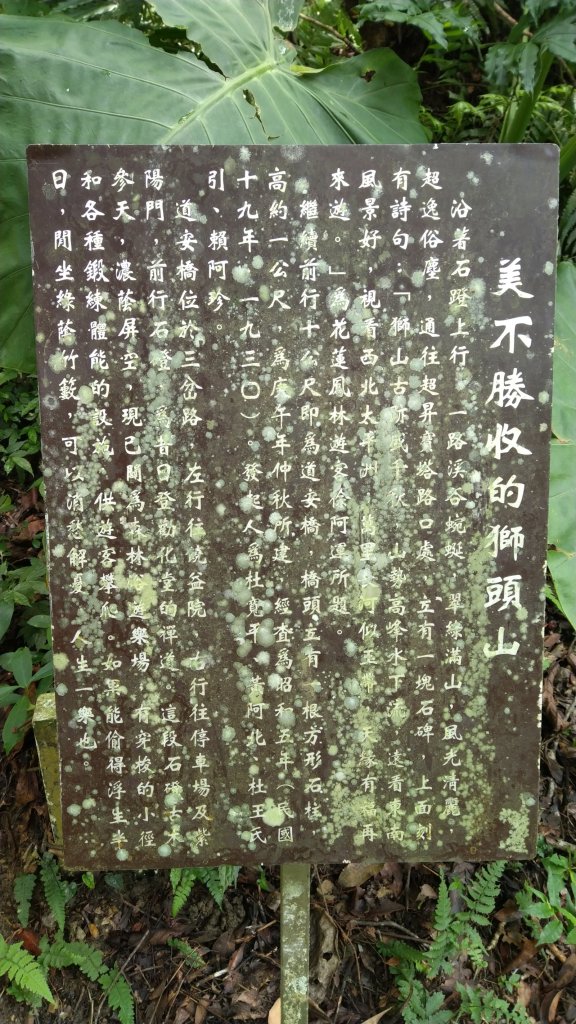 美不勝收的獅頭山
沿著石蹬上行，一路溪谷蜿蜒，翠綠滿山，風光清麗，
超逸俗塵，通往超昇寶塔路口處，立有一塊石碑，上面刻
有詩句：「獅山古跡或千秋，山勢高峰水下流，遠看東南
風景好，視看西北太平洲，萬里長河似玉帶，天緣有福再
來遊。」為花蓮鳳林遊客徐阿運所題。
繼續前行十公尺即為道安橋，橋頭立有一根方形石柱，
高約一公尺，為庚午年仲秋所建，經查為昭和五年（民國
十九年，一九三〇）。發起人為杜寬平、黃阿北、杜王氏
引、賴阿珍。
道安橋位於三岔路，左行往饒益院，右行往停車場及紫
陽門，前行石磴，為昔日登勸化堂的禪道，這段石磴古木
參天，濃蔭屏空，現已闢為森林遊樂場，有穿梭的小徑
和各種鍛練體能的設施，供遊客攀爬。如果能偷得浮生半
日，閒坐綠蔭竹簌，可以消愁解憂，人生一樂也。